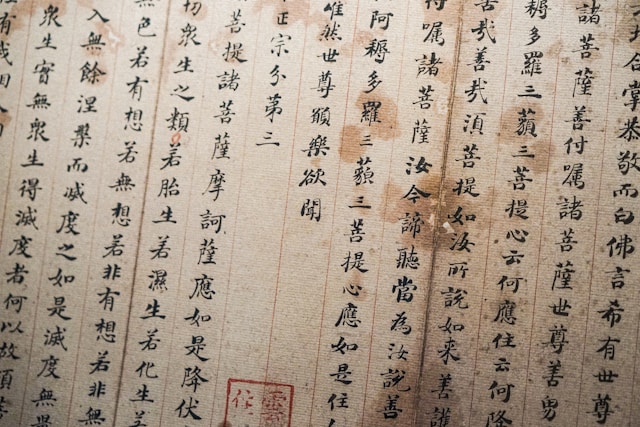 合掌恭敬而白佛言希有世尊
諸菩薩善付囑諸菩薩世尊善男
耨多羅三藐三菩提心云何應住云何降
哉善哉須菩提如汝所說如來善護
付囑諸菩薩汝今諦聽當為汝說善
阿耨多羅三藐三菩提心應如是住
唯然世尊願樂欲聞
正宗分第三
菩提諸菩薩摩訶薩應如是降伏
切眾生之類若胎生若濕生若化生若
色若有想若無想若非有想若非無
入無餘涅槃而滅度之如是滅度無量
眾生實無眾生得滅度者何以故須菩
有我相人